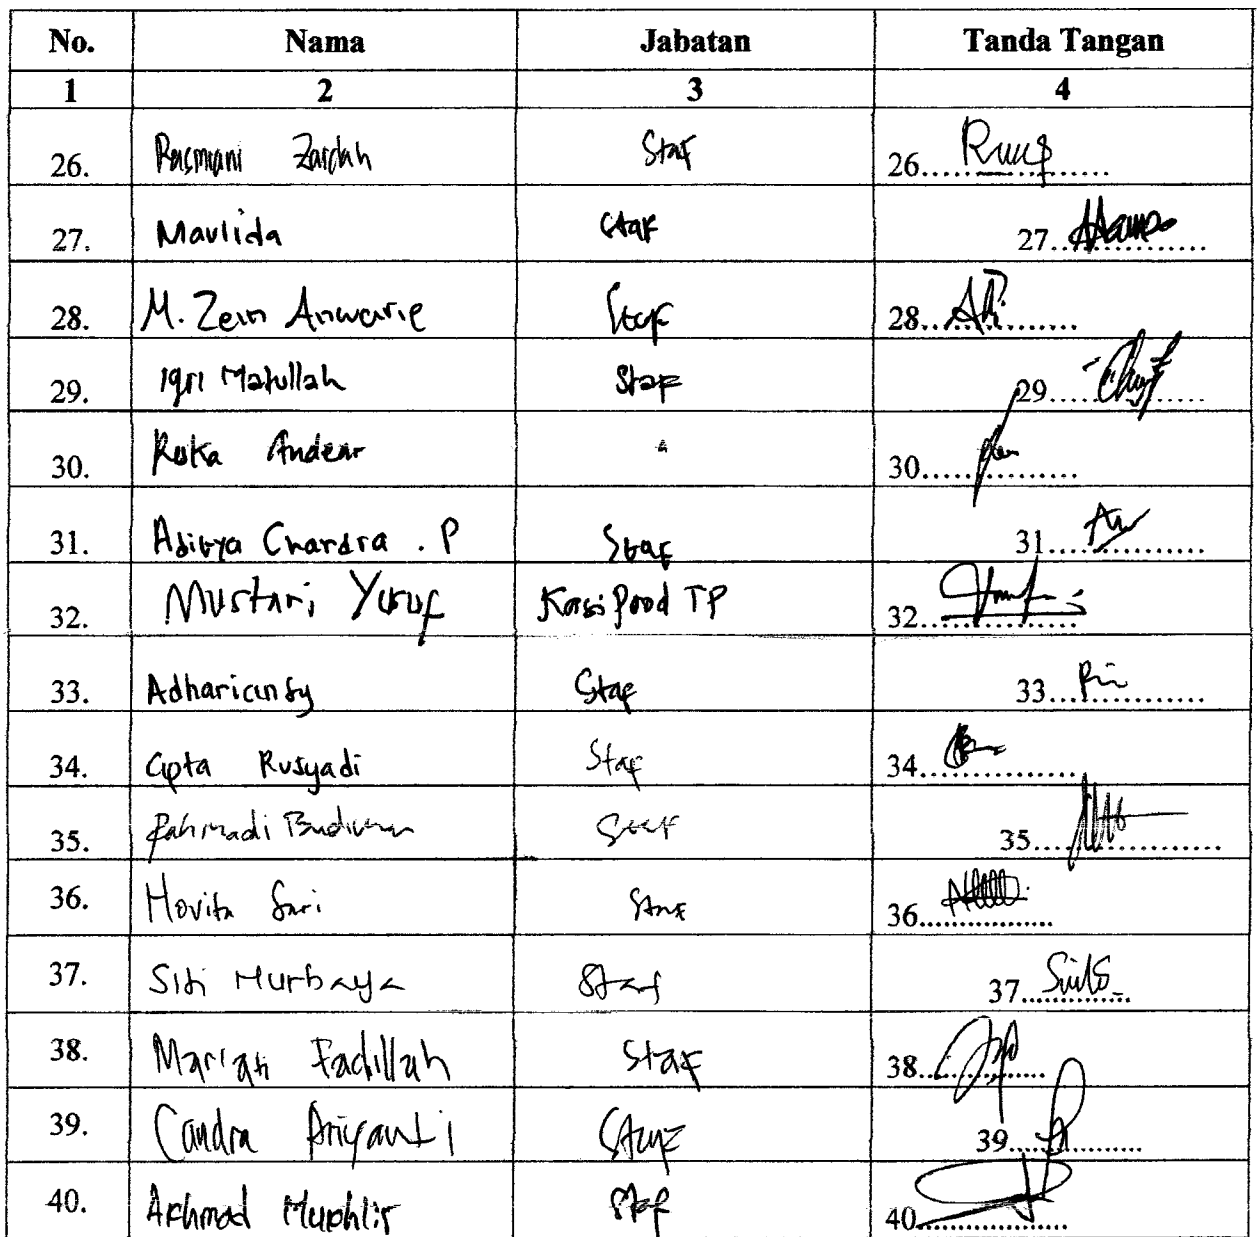 No. Nama Jabatan Tanda Tangan
1 2 3 4
26. Rasmiani Zaidah Staf 26
27. Maulida Staf 27
28. M. Zein Anwarie Staf 28
29. Iqri Matullah Staf 29
30. Reka Andear 30
31. Aditya Chandra . P Staf 31
32. Mustari Yusuf Kasi Prod TP 32
33. Adhariansy Staf 33
34. Cipta Rusyadi Staf 34
35. Rahmadi Budiman Staf 35
36. Novita Sari Staf 36
37. Siti Nurbaya Staf 37
38. Mariati Fadillah Staf 38
39. Candra Ariyanti Staf 39
40. Akhmad Mukhlis Staf 40